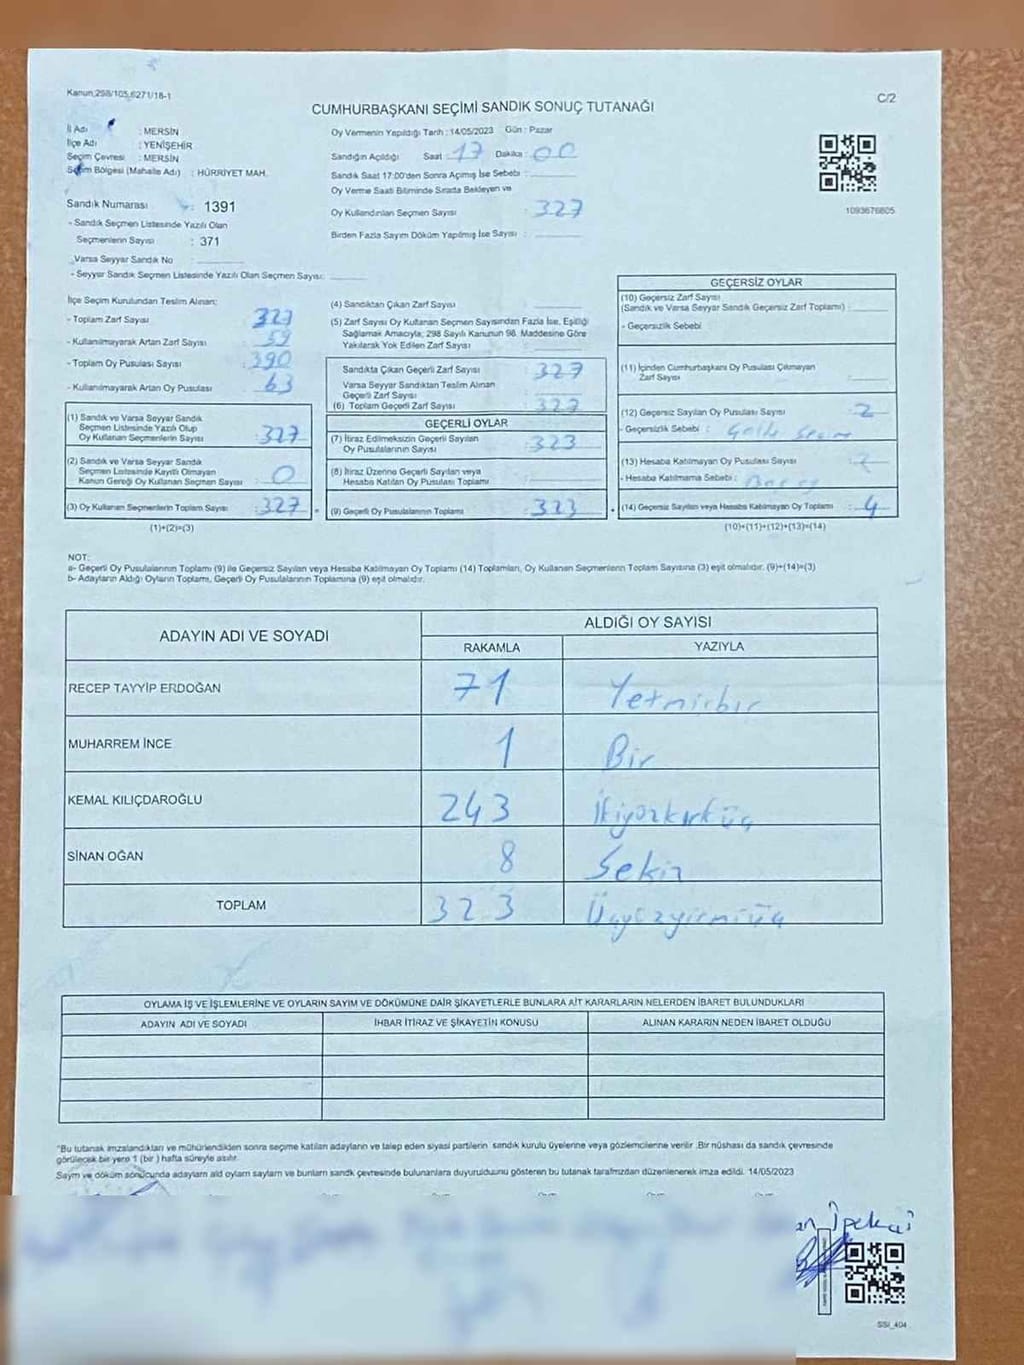 Kanun, 298/105, 6271/18-1
C/2
CUMHURBAŞKANI SEÇİMİ SANDIK SONUÇ TUTANAĞI
İl Adı : MERSİN
İlçe Adı : YENİŞEHİR
Seçim Çevresi : MERSİN
Seçim Bölgesi (Mahalle Adı) : HÜRRİYET MAH.
Sandık Numarası : 1391
- Sandık Seçmen Listesinde Yazılı Olan
Seçmenlerin Sayısı : 371
Varsa Seyyar Sandık No
- Seyyar Sandık Seçmen Listesinde Yazılı Olan Seçmen Sayısı:
Oy Vermenin Yapıldığı Tarih : 14/05/2023 Gün : Pazar
Sandığın Açıldığı Saat : 17 Dakika : 00
Sandık Saat 17:00'den Sonra Açılmış İse Sebebi :
Oy Verme Saati Bitiminde Sırada Bekleyen ve
Oy Kullandırılan Seçmen Sayısı : 327
Birden Fazla Sayım Döküm Yapılmış İse Sayısı :
1093676605
İlçe Seçim Kurulundan Teslim Alınan:
- Toplam Zarf Sayısı 327
- Kullanılmayarak Artan Zarf Sayısı : 59
- Toplam Oy Pusulası Sayısı : 390
- Kullanılmayarak Artan Oy Pusulası : 63
(1) Sandık ve Varsa Seyyar Sandık
Seçmen Listesinde Yazılı Olup
Oy Kullanan Seçmenlerin Sayısı : 327
(2) Sandık ve Varsa Seyyar Sandık
Seçmen Listesinde Kayıtlı Olmayan
Kanun Gereği Oy Kullanan Seçmen Sayısı : 0
(3) Oy Kullanan Seçmenlerin Toplam Sayısı : 327
(1)+(2)=(3)
(4) Sandıktan Çıkan Zarf Sayısı
(5) Zarf Sayısı Oy Kullanan Seçmen Sayısından Fazla İse, Eşitliği
Sağlamak Amacıyla, 298 Sayılı Kanunun 98. Maddesine Göre
Yakılarak Yok Edilen Zarf Sayısı
Sandıkta Çıkan Geçerli Zarf Sayısı : 327
Varsa Seyyar Sandıktan Teslim Alınan
Geçerli Zarf Sayısı
(6) Toplam Geçerli Zarf Sayısı : 327
GEÇERLİ OYLAR
(7) İtiraz Edilmeksizin Geçerli Sayılan
Oy Pusulalarının Sayısı : 323
(8) İtiraz Üzerine Geçerli Sayılan veya
Hesaba Katılan Oy Pusulası Toplamı
(9) Geçerli Oy Pusulalarının Toplamı : 323
GEÇERSİZ OYLAR
(10) Geçersiz Zarf Sayısı
(Sandık ve Varsa Seyyar Sandık Geçersiz Zarf Toplamı) :
- Geçersizlik Sebebi
(11) İçinden Cumhurbaşkanı Oy Pusulası Çıkmayan
Zarf Sayısı
(12) Geçersiz Sayılan Oy Pusulası Sayısı : 2
- Geçersizlik Sebebi :
(13) Hesaba Katılmayan Oy Pusulası Sayısı : 2
- Hesaba Katılmama Sebebi :
(14) Geçersiz Sayılan veya Hesaba Katılmayan Oy Toplamı : 4
(10)+(11)+(12)+(13)=(14)
NOT:
a- Geçerli Oy Pusulalarının Toplamı (9) ile Geçersiz Sayılan veya Hesaba Katılmayan Oy Toplamı (14) Toplamları, Oy Kullanan Seçmenlerin Toplam Sayısına (3) eşit olmalıdır. (9)+(14)=(3)
b- Adayların Aldığı Oyların Toplamı, Geçerli Oy Pusulalarının Toplamına (9) eşit olmalıdır.
ADAYIN ADI VE SOYADI ALDIĞI OY SAYISI
RAKAMLA YAZIYLA
RECEP TAYYİP ERDOĞAN 71 Yetmişbir
MUHARREM İNCE 1 Bir
KEMAL KILIÇDAROĞLU 243 İkiyüzkırküç
SİNAN OĞAN 8 Sekiz
TOPLAM 323 Üçyüzyirmiüç
OYLAMA İŞ VE İŞLEMLERİNE VE OYLARIN SAYIM VE DÖKÜMÜNE DAİR ŞİKAYETLERLE BUNLARA AİT KARARLARIN NELERDEN İBARET BULUNDUKLARI
ADAYIN ADI VE SOYADI İHBAR İTİRAZ VE ŞİKAYETİN KONUSU ALINAN KARARIN NEDEN İBARET OLDUĞU
"Bu tutanak imzalandıktan ve mühürlendikten sonra seçime katılan adayların ve talep eden siyasi partilerin sandık kurulu üyelerine veya gözlemcilerine verilir. Bir nüshası da sandık çevresinde
görülecek bir yere 1 (bir ) hafta süreyle asılır.
Sayım ve döküm sonucunda adayların ald oyların sayların ve bunların sandk çevresinde bulunanlara duyurulduunu gösteren bu tutanak tarafmzdan düzenlenerek imza edildi. 14/05/2023
an İpekçi
SSI_404